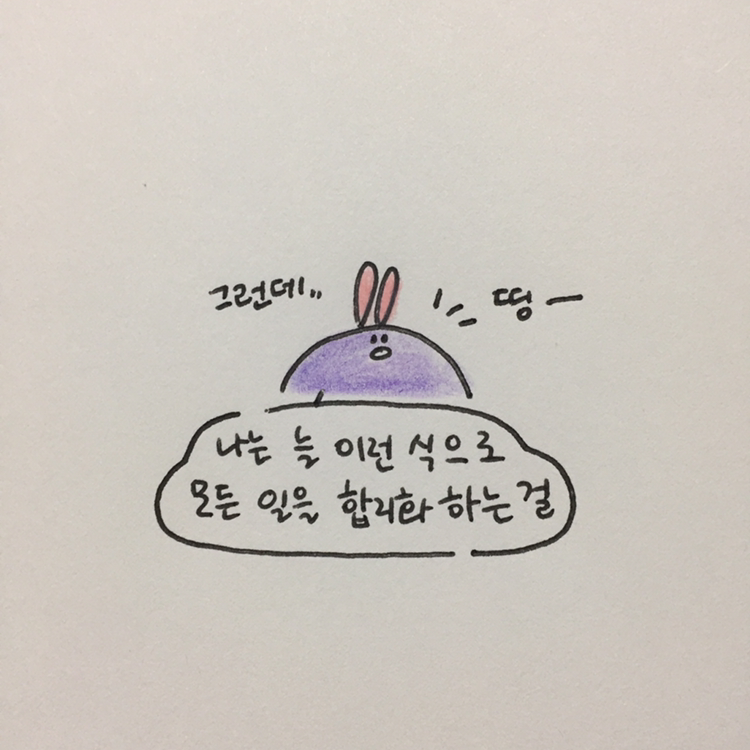 그런데..
띵—
나는 늘 이런 식으로
모든 일을 합리화 하는 걸